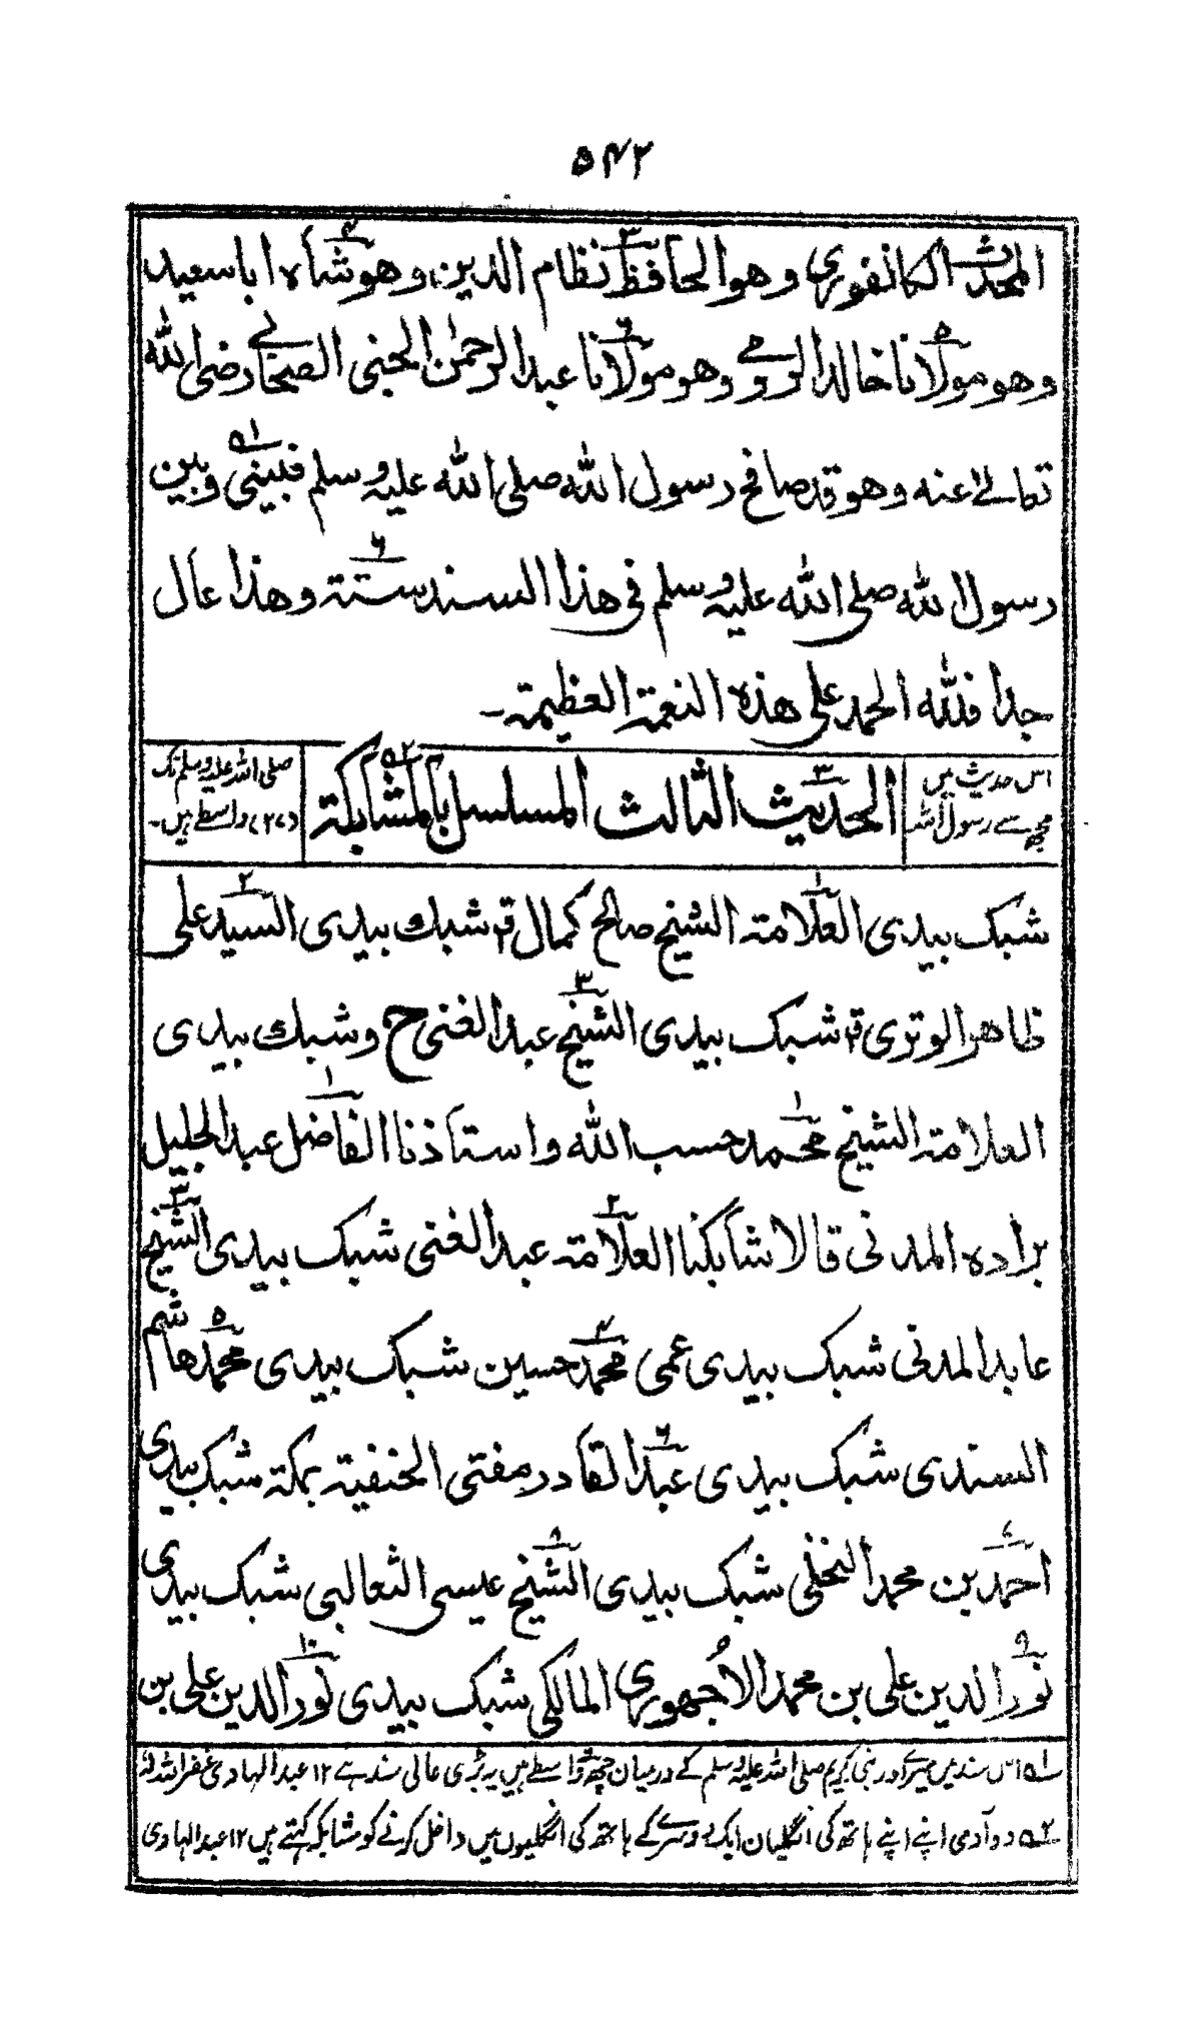 ۵۴۲
المحدث الکانفوری وهو الحافظ نظام الدین وهو شاه ابا سعید
وهو مولانا خالد الرومی وهو مولانا عبد الرحمن الجنی الصحابی رضی الله
تعالےٰ عنه وهو قد صافح رسول الله صلی الله علیه وسلم فبینی وبین
رسول الله صلی الله علیه وسلم فی هذا السند ستة وهذا عال
جدا فلله الحمد علی هذه النعمة العظیمة۔
اس حدیث میں
مجھ سے رسول اللہ
الحدیث الثالث المسلسل بالمشابکة
صلی اللہ علیہ وسلم تک
(۲۷) واسطے ہیں۔
شبک بیدی العلامة الشیخ صالح کمال قٓ شبک بیدی السید علی
ظاهر الوتری قٓ شبک بیدی الشیخ عبد الغنی ح وشبک بیدی
العلامة الشیخ محمد حسب الله واستاذنا الفاضل عبد الجلیل
برادہ المدنی قالا شابکنا العلامة عبد الغنی شبک بیدی الشیخ
عابد المدنی شبک بیدی عمی محمد حسین شبک بیدی محمد هاشم
السندی شبک بیدی عبد القادر مفتی الحنفیة بمکة شبک بیدی
احمد بن محمد النخلی شبک بیدی الشیخ عیسی الثعالبی شبک بیدی
نور الدین علی بن محمد الاجهوری المالکی شبک بیدی نور الدین علی بن
۱ھ اس سند میں میرے اور نبی کریم صلی اللہ علیہ وسلم کے درمیان چھ واسطے ہیں یہ بڑی عالی سند ہے ۱۲ عبد الہادی غفر اللہ لہ
۲ھ دو آدمی اپنے اپنے ہاتھ کی انگلیاں ایک دوسرے کے ہاتھ کی انگلیوں میں داخل کرنے کو مشابکہ کہتے ہیں ۱۲ عبد الہادی